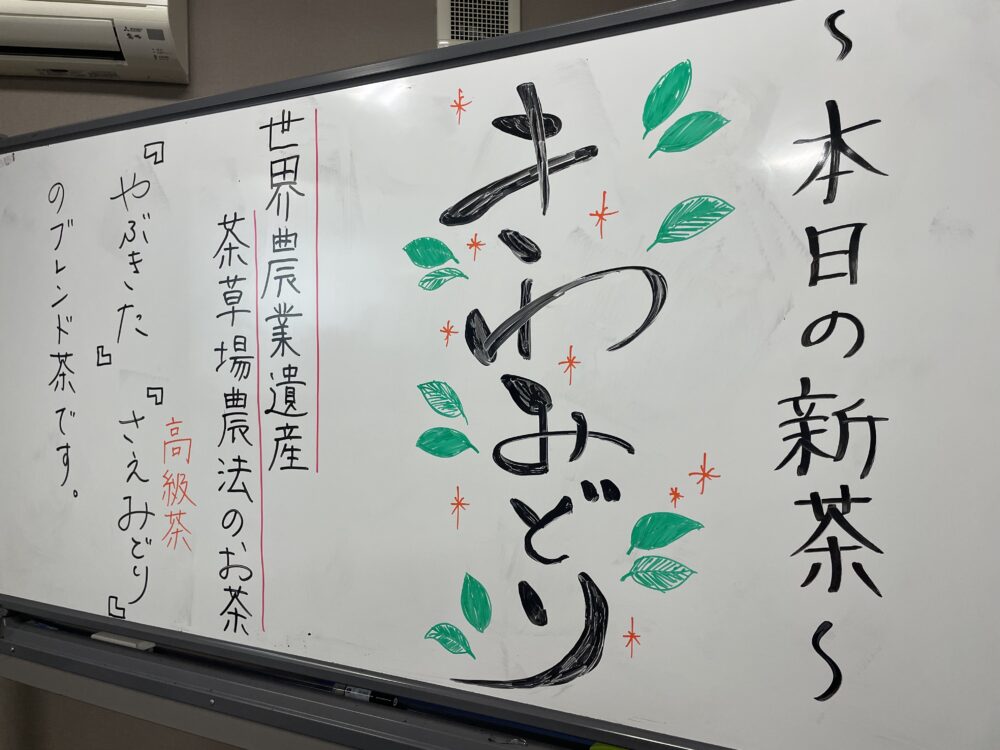 ~本日の新茶~
きわみどり
世界農業遺産
茶草場農法のお茶
高級茶
『やぶきた』『さえみどり』
のブレンド茶です。